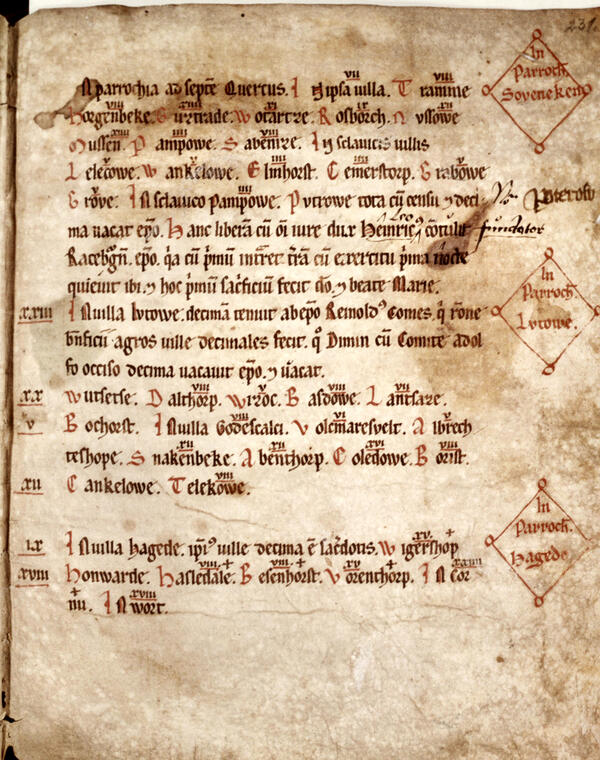 231.
In Parroch. Soveneken
N parrochia ad septē Quercus. I N ipsa uilla. T ramme
Hoegenbeke. G urtrade. W otartze. R osborch. N ussowe
Mussen. P ampowe. S abenize. I N sclauicis uillis
L elecowe. W ankelowe. E lmhorst. C emerstorp. G rabowe
G rove. I N sclauico Pampowe. P utrowe tota cū censu ⁊ deci
ma uacat ep̄o. H anc liberā cū oī iure dux Heinricꝰ Leo cōtulit fundator
Raceb̄gn̄. ep̄o. q̄a cū p̄mū intret trā cū exercitu p̄ma nocte
quieuit ibi ⁊ hoc p̄mū sac̄ficiū fecit d̄o. ⁊ beate Marie.
In Parroch. Lutowe.
xxiii I N uilla lutowe. decimā tenuit ab ep̄o Reinoldꝰ Comes. q̄
b̄nficii agros uille decimales fecit. q̄ Dimin cū Comite adol
fo occiso decima uacauit ep̄o. ⁊ uacat.
xx W utsetse. D althorp. W izoc. B asdowe. L antsare.
v B ochorst. I N uilla Godescalci. V olcmaresvelt. A lbrech
teshope. S nakenbeke. A benthorp. C oledowe. B orist.
xii C ankelowe. T elekowe.
In Parroch. Hagede
ix I N uilla hagede. ip̄iꝰ uille decima ē sac̄dotis. W igershop
xviii Honwarde. Hasledale. B esenhorst. V orenthorp. I N cor
nu. I N wort.